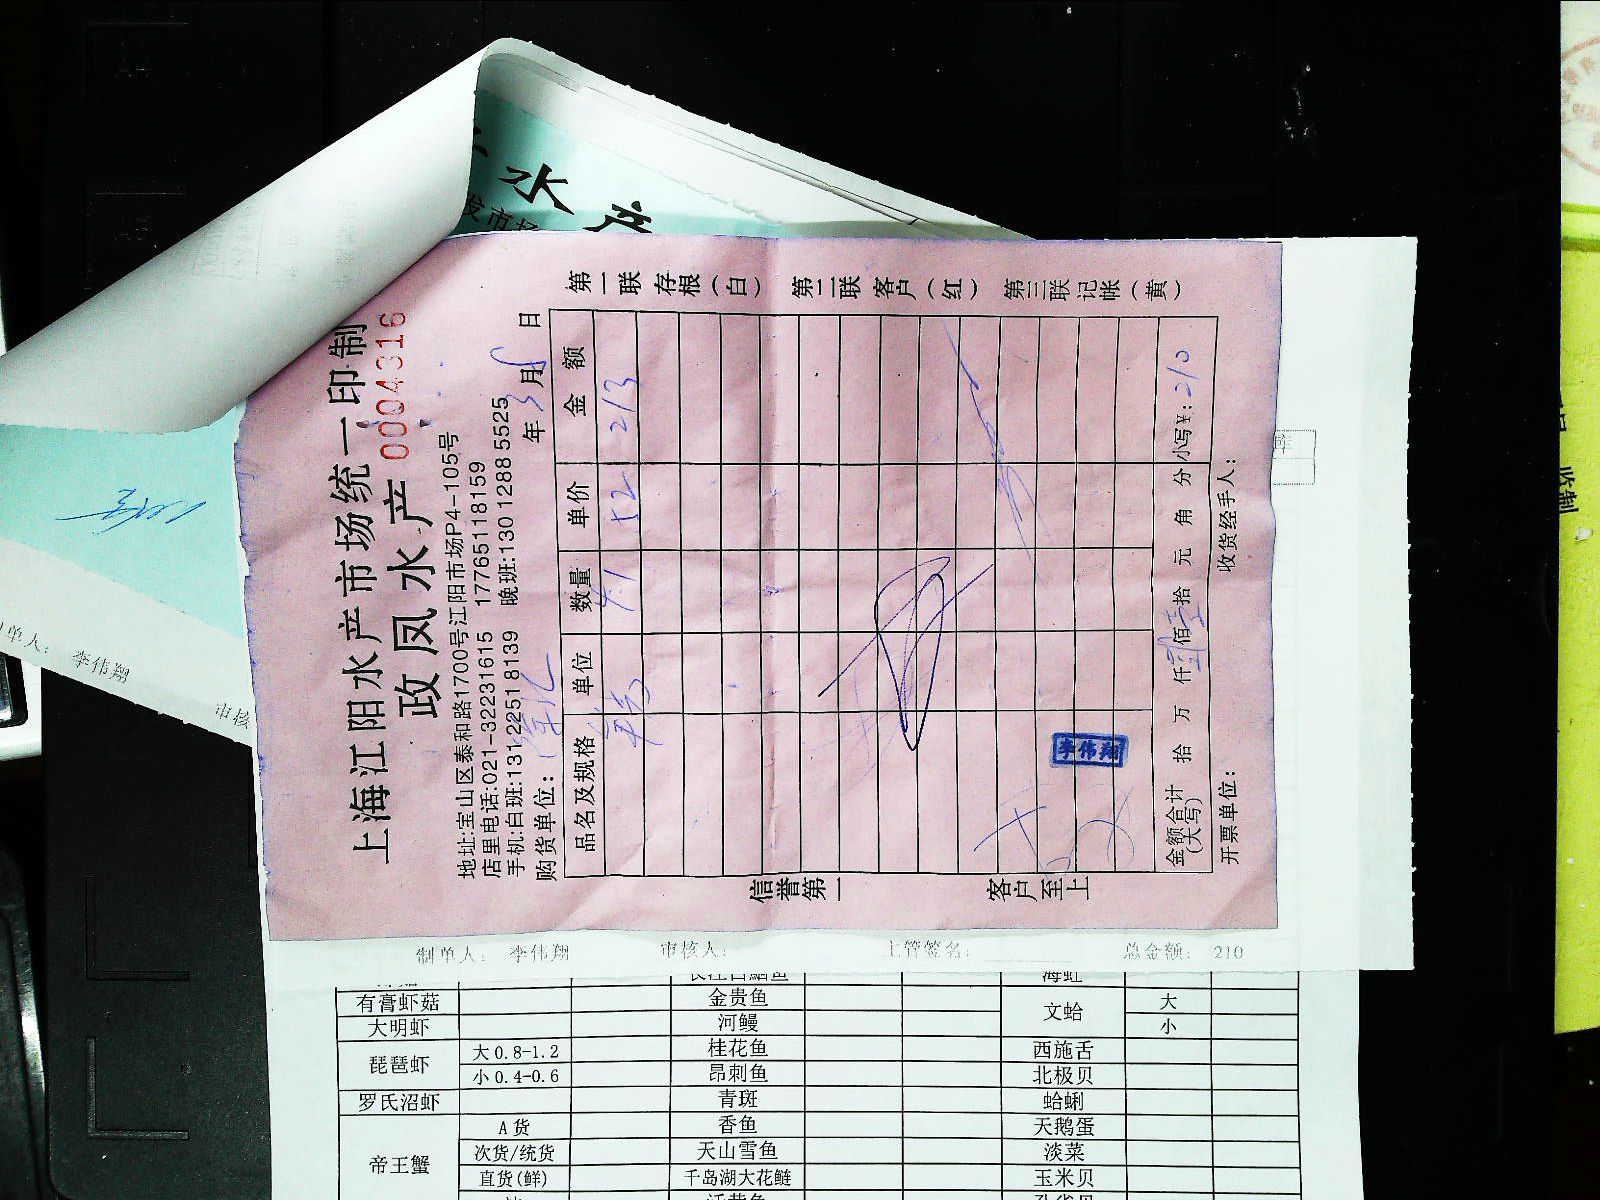 上海江阳水产市场统一印制
政凤水产
0004316
地址:宝山区泰和路1700号江阳市场P4-105号
店里电话:021-32231615 17765118159
手机:白班:131 2251 8139 晚班:130 1288 5525
购货单位: 年 3 月 8 日
品名及规格 单位 数量 单价 金额
4.1 52 213
李伟翔
金额合计(大写) 拾 万 仟 佰 壹 拾 元 角 分 小写¥: 210
开票单位: 收货经手人:
信誉第一 客户至上
第一联 存根(白) 第二联 客户(红) 第三联 记帐(黄)
水产
发市场
单人: 李伟翔
审核
制单人: 李伟翔 审核人: 主管签名: 总金额: 210
海虹
有膏虾菇 金贵鱼 文蛤 大
大明虾 河鳗 小
琵琶虾 大 0.8-1.2 桂花鱼 西施舌
小 0.4-0.6 昂刺鱼 北极贝
罗氏沼虾 青斑 蛤蜊
帝王蟹 A 货 香鱼 天鹅蛋
次货/统货 天山雪鱼 淡菜
直货(鲜) 千岛湖大花鲢 玉米贝
监制